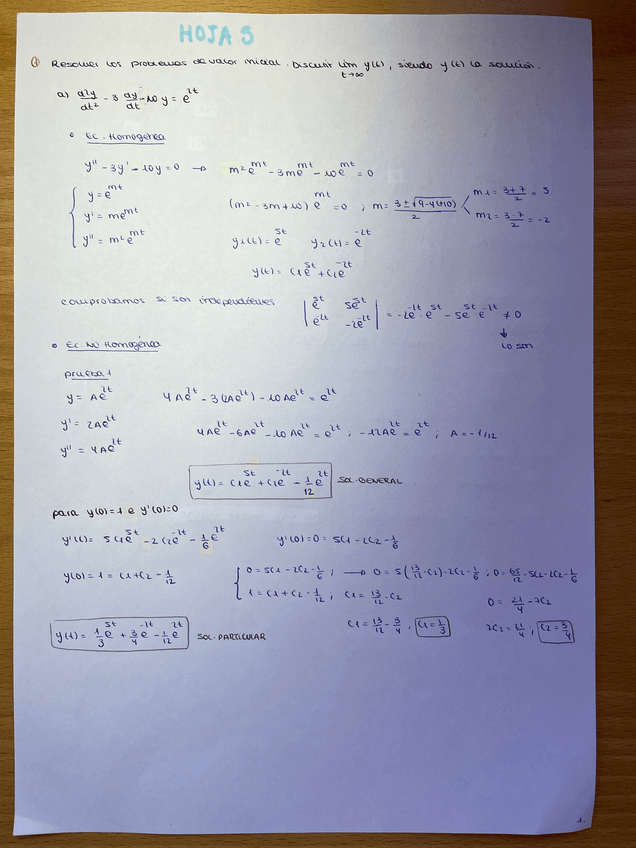 HOJA 5
① Resolver los problemas de valor inicial. Discutir lim y(t), siendo y(t) la solución.
t→∞
a) d²y/dt² - 3 dy/dt - 10y = e^2t
• Ec. Homogénea
y'' - 3y' - 10y = 0 → m²e^mt - 3me^mt - 10e^mt = 0
y = e^mt
y' = me^mt
y'' = m²e^mt
(m² - 3m + 10) e^mt = 0 ; m = (3 ± √(9 - 4(-10)))/2
m1 = (3+7)/2 = 5
m2 = (3-7)/2 = -2
y1(t) = e^5t y2(t) = e^-2t
y(t) = C1e^5t + C2e^-2t
comprobamos si son independientes
|e^5t 5e^5t|
|e^-2t -2e^-2t| = -2e^-2t · e^5t - 5e^5t · e^-2t ≠ 0
↓
lo son
• Ec. No Homogénea
prueba 1
y = Ae^2t 4Ae^2t - 3(2Ae^2t) - 10Ae^2t = e^2t
y' = 2Ae^2t
4Ae^2t - 6Ae^2t - 10Ae^2t = e^2t ; -12Ae^2t = e^2t ; A = -1/12
y'' = 4Ae^2t
y(t) = C1e^5t + C2e^-2t - 1/12 e^2t SOL. GENERAL
para y(0)=1 e y'(0)=0
y'(t) = 5C1e^5t - 2C2e^-2t - 1/6 e^2t y'(0) = 0 = 5C1 - 2C2 - 1/6
y(0) = 1 = C1 + C2 - 1/12
0 = 5C1 - 2C2 - 1/6 ; → 0 = 5(13/12 - C2) - 2C2 - 1/6 ; 0 = 65/12 - 5C2 - 2C2 - 1/6
1 = C1 + C2 - 1/12 ; C1 = 13/12 - C2
0 = 21/4 - 7C2
C1 = 13/12 - 3/4 ; C1 = 1/3
7C2 = 21/4 ; C2 = 3/4
y(t) = 1/3 e^5t + 3/4 e^-2t - 1/12 e^2t SOL. PARTICULAR
1.